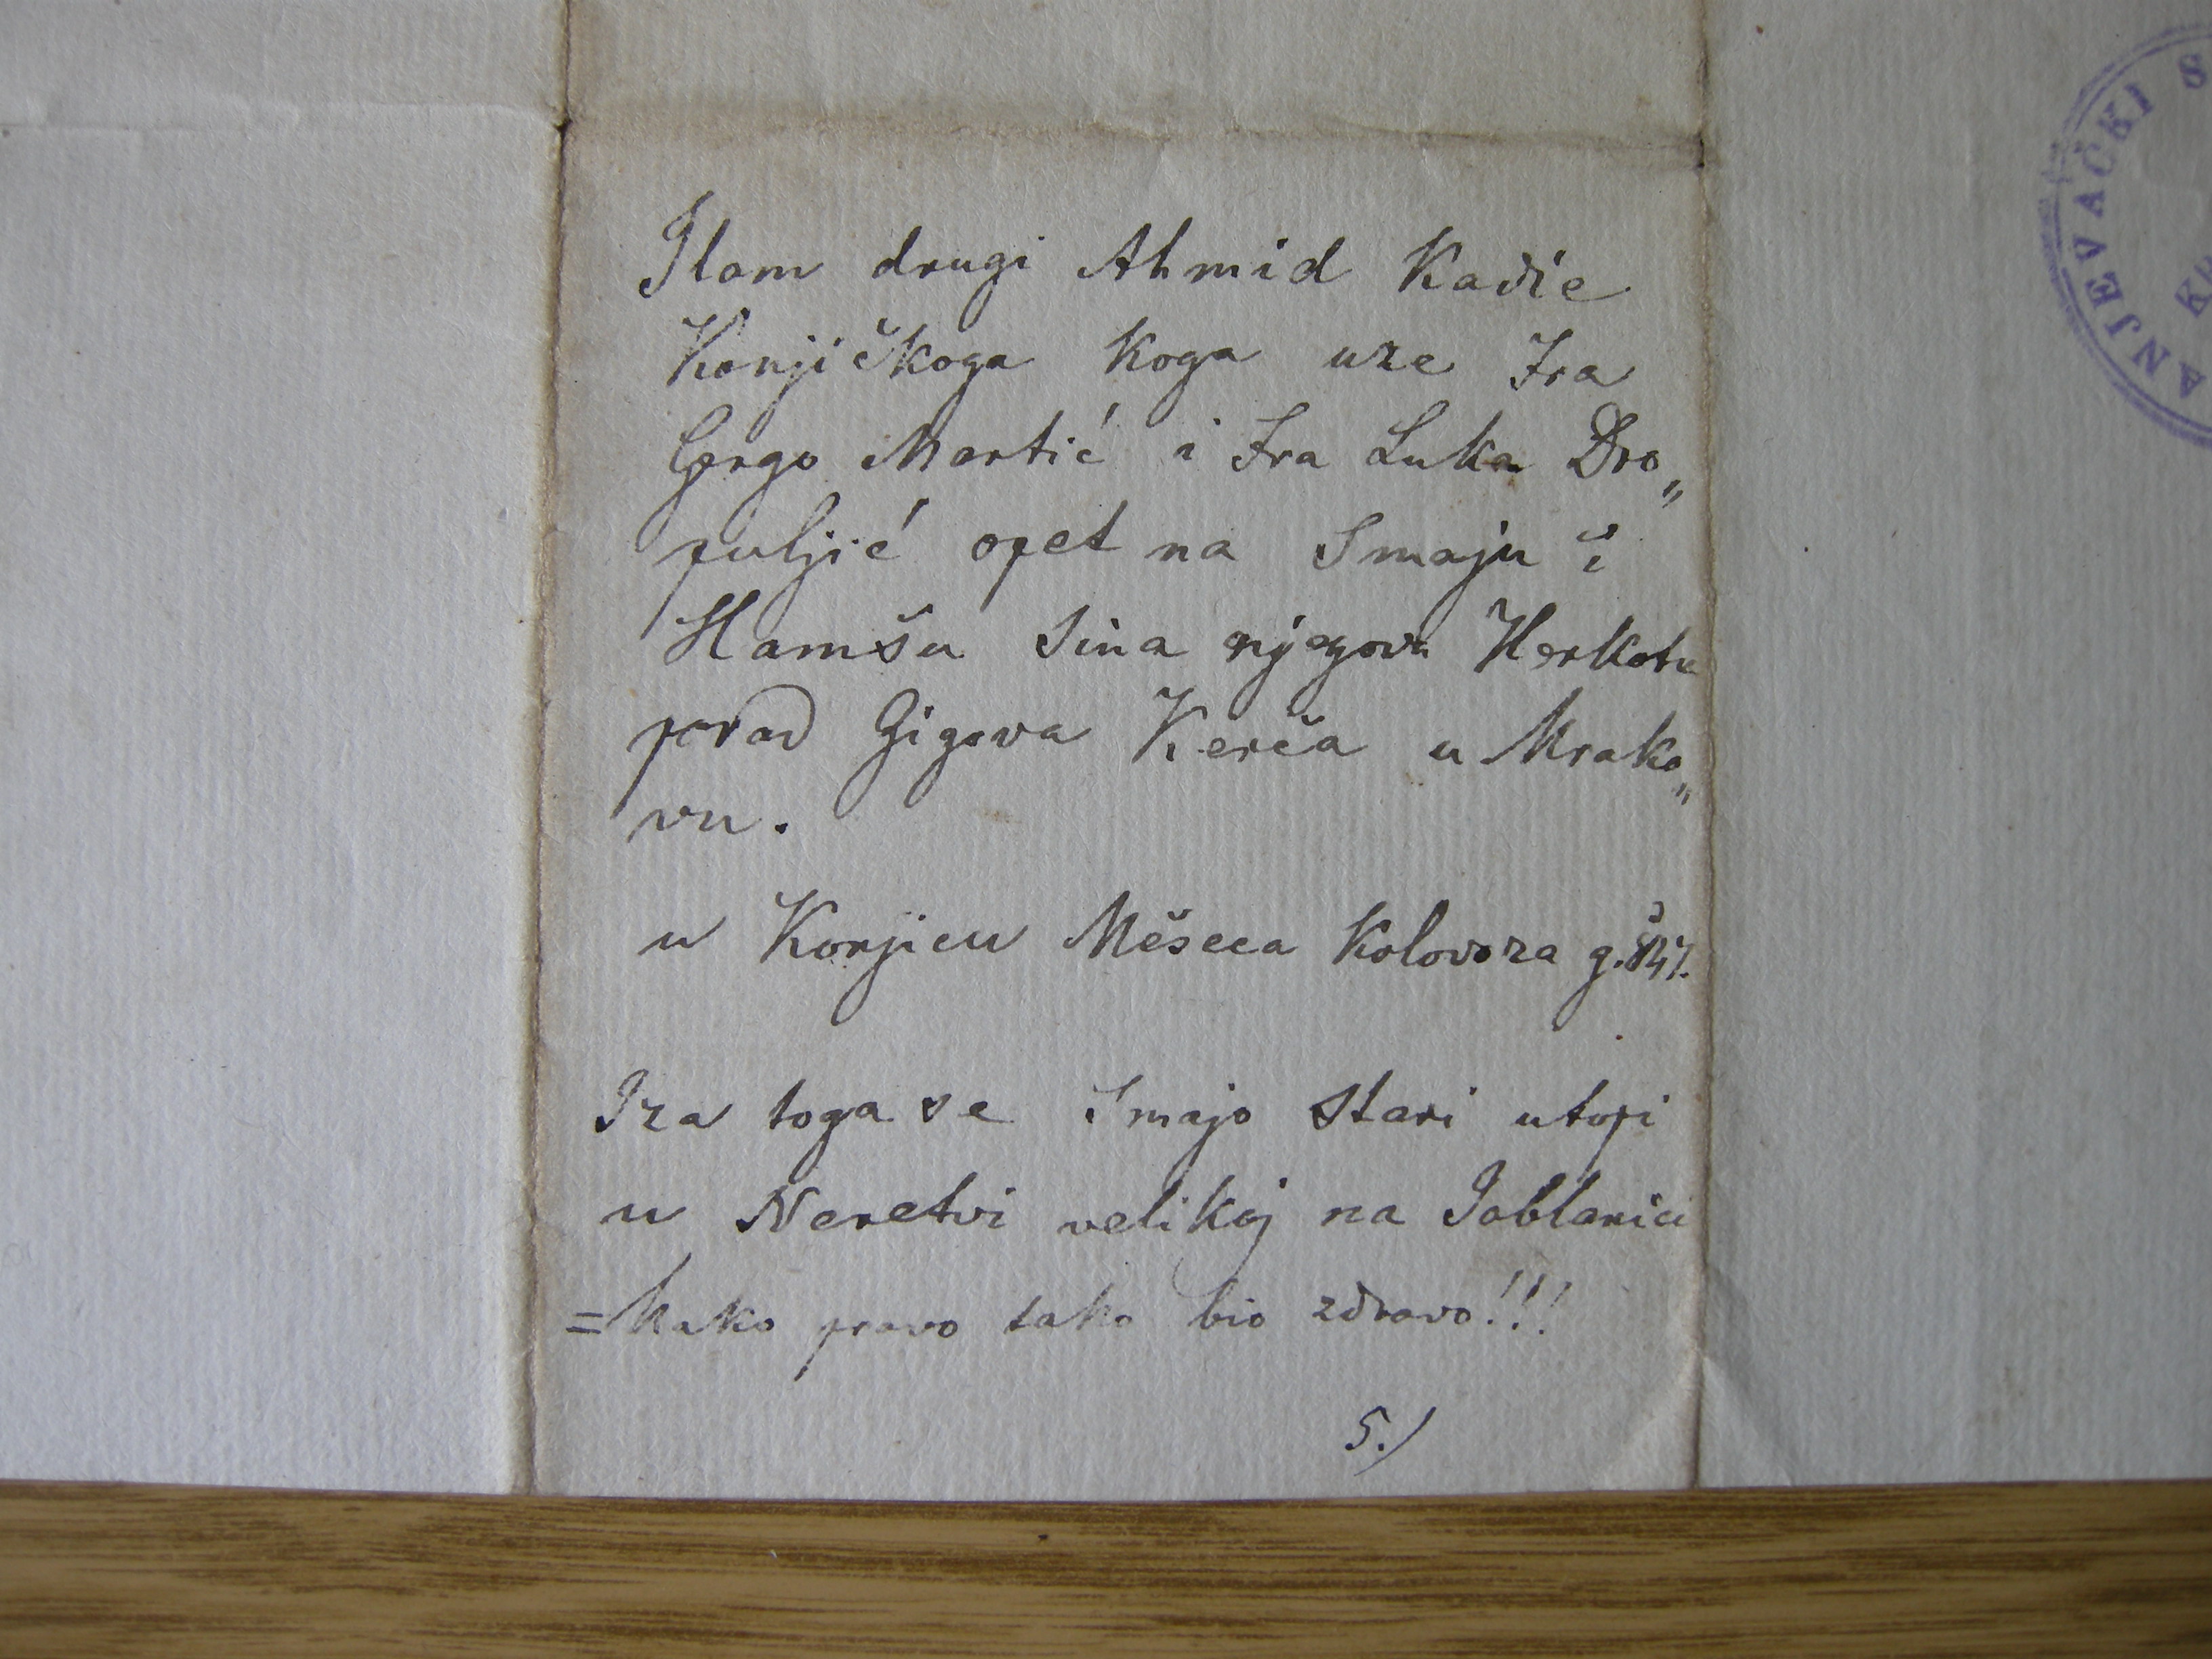 Ilam drugi Ahmid Kadie
Konjičkoga koga uze Fra
Gørgo Martić i Fra Luka Dro„
puljić opet na Smaju i
Hamšu sina njegova Herkotu
porad Gigova Kerča u Mrako„
vu.
u Konjicu Měseca Kolovoza g.
Iza toga se Smajo stari utopi
u Neretvi velikoj na Jablanici
=kako pravo tako bio zdravo!!!
5./
ANJEVAČKI S